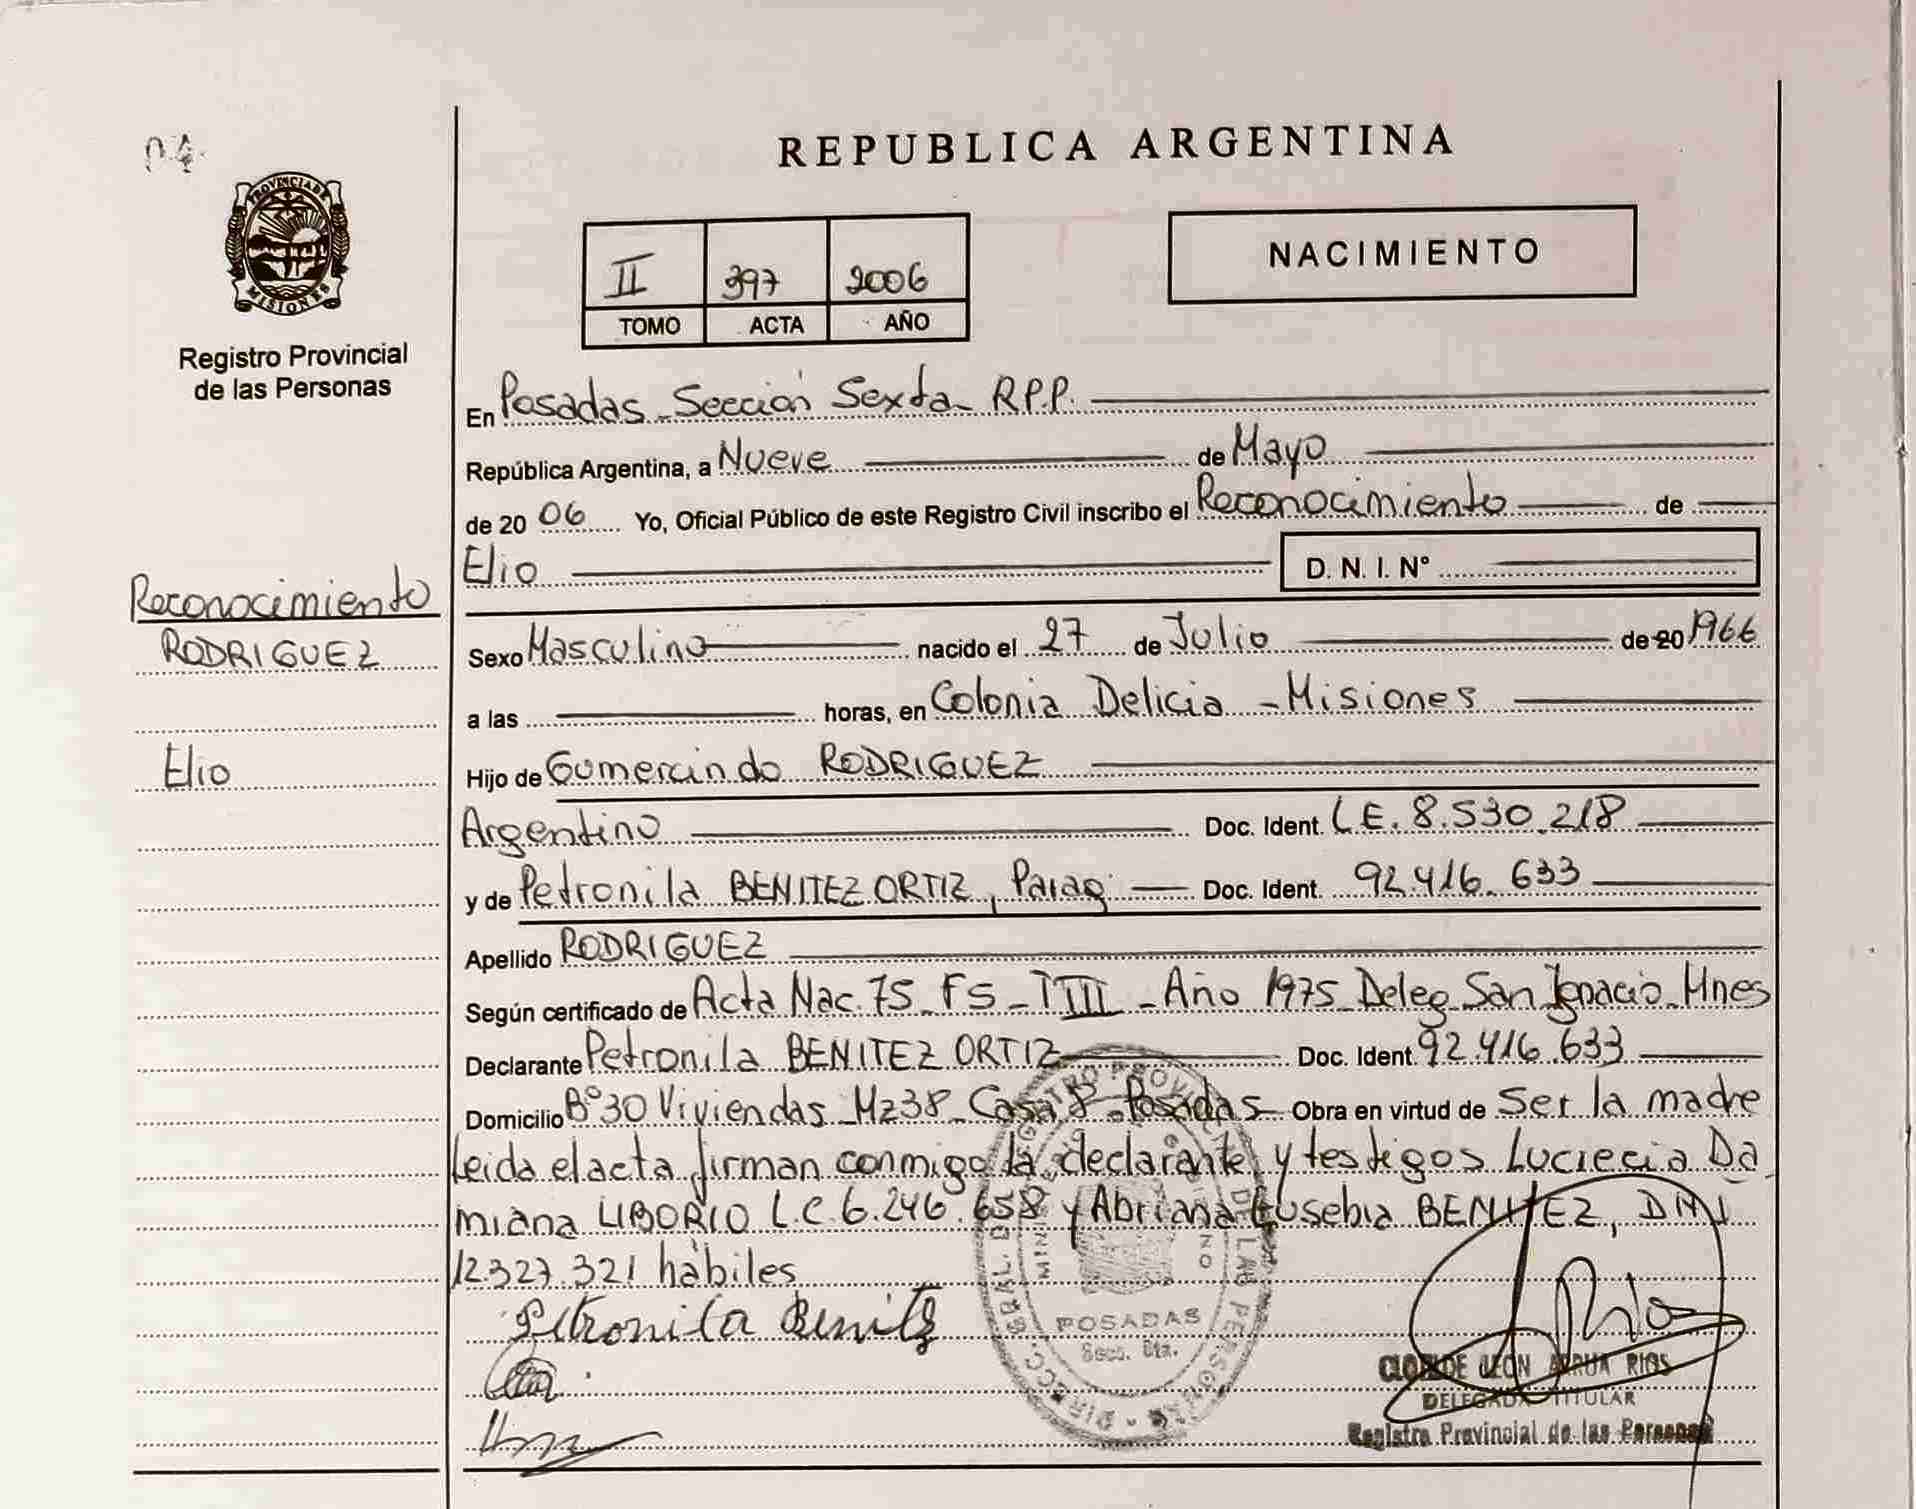 04.
PROVINCIA DE
MISIONES
Registro Provincial
de las Personas
REPUBLICA ARGENTINA
II 397 2006
TOMO ACTA AÑO
NACIMIENTO
En Posadas - Sección Sexta - R.P.P.
República Argentina, a Nueve de Mayo
de 20 06 Yo, Oficial Público de este Registro Civil inscribo el Reconocimiento de
Elio D. N. I. N°
Reconocimiento
RODRIGUEZ
Elio
Sexo Masculino nacido el 27 de Julio de 20 1966
a las horas, en Colonia Delicia - Misiones
Hijo de Gumercindo RODRIGUEZ
Argentino Doc. Ident. L.E. 8.530.218
y de Petronila BENITEZ ORTIZ, Parag. Doc. Ident. 92.416.633
Apellido RODRIGUEZ
Según certificado de Acta Nac. 75 - F5 - TIII - Año 1975 - Deleg San Ignacio - Mnes
Declarante Petronila BENITEZ ORTIZ Doc. Ident. 92.416.633
Domicilio B° 30 Viviendas - Mz 38 - Casa 8 - Posadas - Obra en virtud de Ser la madre
Leida el acta firman conmigo la declarante y testigos Lucrecia Da
miana LIBORIO L.C 6.246.658 y Abriana Eusebia BENITEZ, DNI
12.327.321 hábiles
Petronila Benitz
POSADAS
Secc. 6ta.
CLOTILDE LEON ARRUA RIOS
DELEGADA TITULAR
Registro Provincial de las Personas